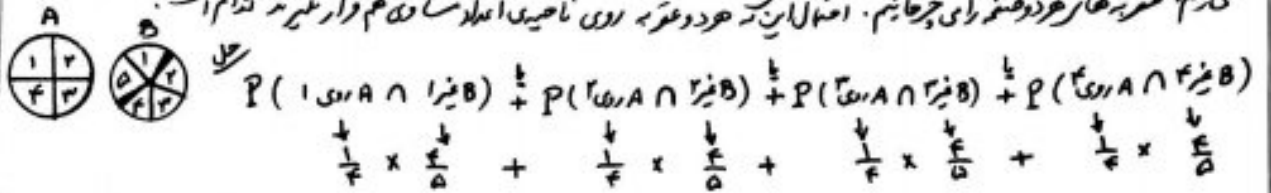 عقربه های هر دو صفحه را می چرخانیم. احتمال این که هر دو عقربه روی ناحیه ی اعداد مساوی هم قرار نگیرند کدام است
A
B
۱ ۲
۴ ۳
۱ ۲ ۳ ۴ ۵
حل
P(۱ روی A ∩ ۱ غیر B) + یا P(۲ روی A ∩ ۲ غیر B) + یا P(۳ روی A ∩ ۳ غیر B) + یا P(۴ روی A ∩ ۴ غیر B)
↓ ↓ ↓ ↓ ↓ ↓ ↓ ↓
۱/۴ × ۴/۵ + ۱/۴ × ۴/۵ + ۱/۴ × ۴/۵ + ۱/۴ × ۴/۵